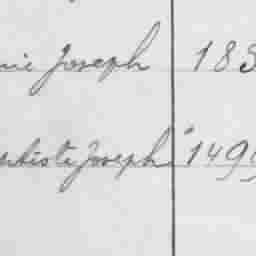 nie Joseph 183
ptiste Joseph 1499